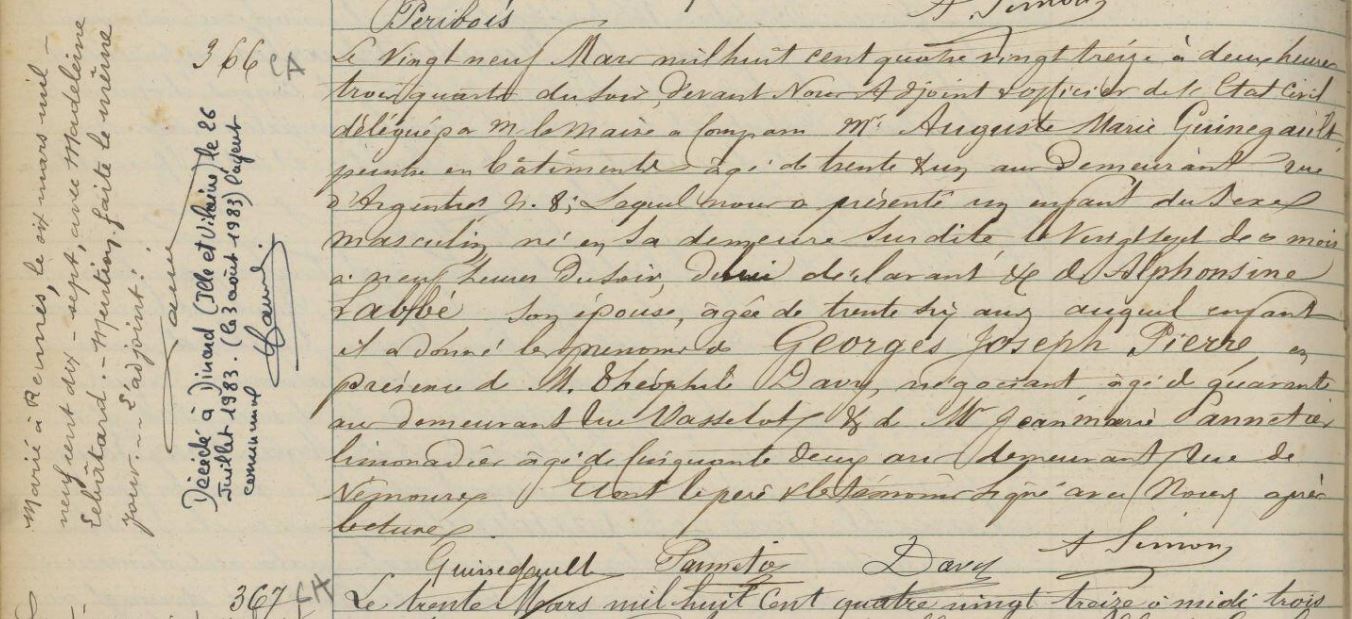 Peribois
A. Simon
366
Le Vingt neuf Mars mil huit cent quatre vingt treize à deux heures
trois quarts du soir, Devant Nous Adjoint & officier de l'Etat Civil
délégué par M. le Maire a Comparu Mr. Auguste Marie Guinegault
peintre en bâtiments âgé de trente & un ans Demeurant rue
d'Argentré N. 8; Lequel nous a présenté un enfant du Sexe
masculin né en sa demeure susdite le Vingt sept de ce mois
à neuf heures du soir, de lui déclarant & de Alphonsine
Labbé son épouse, âgée de trente six ans auquel enfant
il a donné les prénoms de Georges Joseph Pierre en
présence de M. Théophile Davy, négociant âgé de quarante
ans demeurant rue Vasselot & de Mr Jean marie Pannetier
limonadier âgé de Cinquante deux ans demeurant Rue de
Nemours Et ont le père & les témoins signé avec Nous après
lecture
Guinegault Pannetier Davy A Simon
367
Le trente Mars mil huit Cent quatre vingt treize à midi trois
Marié à Rennes, le six mars mil-
neuf cent dix-sept, avec Madeleine
. - Mention faite le même
jour. - L'adjoint:
Décédé à Dinard (Ille et Vilaine) le 26
Juillet 1983. (le 3 août 1983) l'agent
communal